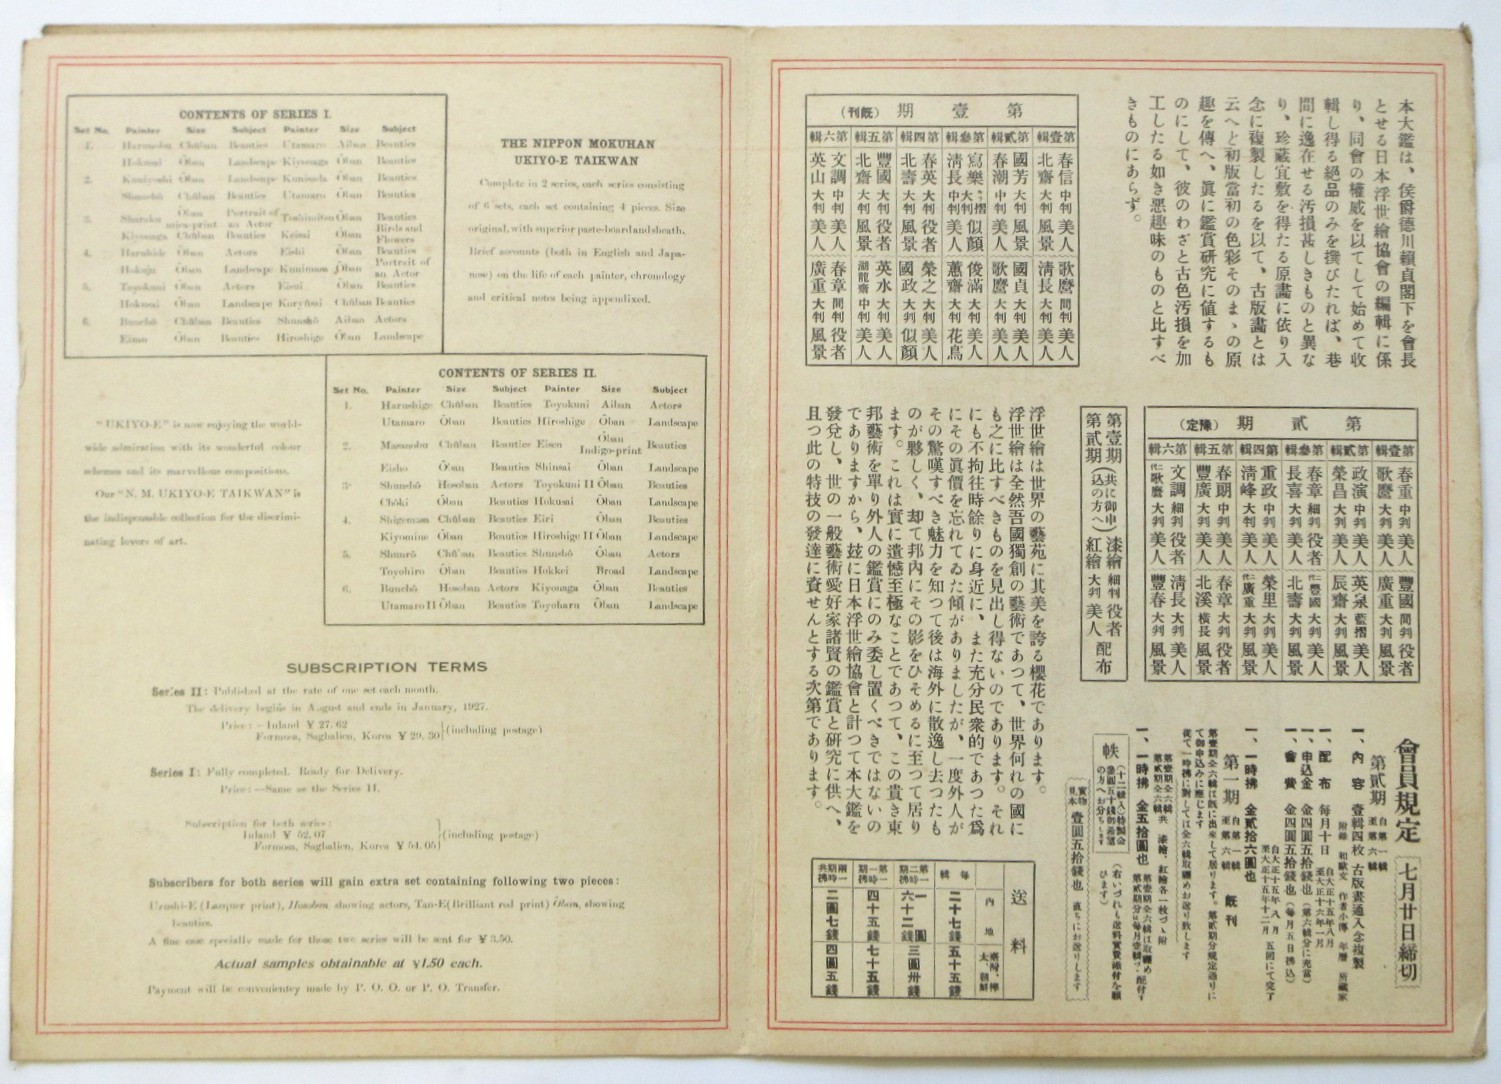 CONTENTS OF SERIES I.
Set No. Painter Size Subject Painter Size Subject
1. Harunobu Chūban Beauties Utamaro Aiban Beauties
Hokusai Ōban Landscape Kiyonaga Ōban Beauties
2. Kuniyoshi Ōban Landscape Kunisada Ōban Beauties
Shunchō Chūban Beauties Utamaro Ōban Beauties
3. Sharaku Ōban mica-print Portrait of an Actor Toshimitsu Ōban Beauties
Kiyonaga Chūban Beauties Keisai Ōban Birds and Flowers
4. Ōban Actors Eishi Ōban Beauties
Hokuju Ōban Landscape Kunimasa Ōban Portrait of an Actor
5. Toyokuni Ōban Actors Eisui Ōban Beauties
Hokusai Ōban Landscape Koryūsai Chūban Beauties
6. Bunchō Chūban Beauties Shunshō Aiban Actors
Eizan Ōban Beauties Hiroshige Ōban Landscape
THE NIPPON MOKUHAN
UKIYO-E TAIKWAN
Complete in 2 series, each series consisting
of 6 sets, each set containing 4 pieces. Size
original, with superior paste-board and sheath.
Brief accounts (both in English and Japa-
nese) on the life of each painter, chronology
and critical notes being appendixed.
CONTENTS OF SERIES II.
Set No. Painter Size Subject Painter Size Subject
1. Harushige Chūban Beauties Toyokuni Aiban Actors
Utamaro Ōban Beauties Hiroshige Ōban Landscape
2. Masanobu Chūban Beauties Eisen Ōban Indigo-print Beauties
Eisho Ōban Beauties Shinsai Ōban Landscape
3. Shunshō Hosoban Actors Toyokuni II Ōban Beauties
Chōki Ōban Beauties Hokusai Ōban Landscape
4. Shigemasa Chūban Beauties Eiri Ōban Beauties
Kiyomine Ōban Beauties Hiroshige II Ōban Landscape
5. Shunrō Chūban Beauties Shunshō Ōban Actors
Toyohiro Ōban Beauties Hokkei Broad Landscape
6. Bunchō Hosoban Actors Kiyonaga Ōban Beauties
Utamaro II Ōban Beauties Toyoharu Ōban Landscape
"UKIYO-E" is now enjoying the world-
wide admiration with its wonderful colour
schemes and its marvellous compositions.
Our "N. M. UKIYO-E TAIKWAN" is
the indispensable collection for the discrimi-
nating lovers of art.
SUBSCRIPTION TERMS
Series II: Published at the rate of one set each month.
The delivery begins in August and ends in January, 1927.
Price: - Inland ¥ 27.62
Formosa, Saghalien, Korea ¥ 29.30 (including postage)
Series I: Fully completed. Ready for Delivery.
Price: —Same as the Series II.
Subscription for both series:
Inland ¥ 52.07
Formosa, Saghalien, Korea ¥ 54.05 (including postage)
Subscribers for both series will gain extra set containing following two pieces:
Urushi-E (Lacquer print), Hosoban, showing actors, Tan-E (Brilliant red print) Ōban, showing
beauties.
A fine case specially made for those two series will be sent for ¥ 3.50.
Actual samples obtainable at ¥1.50 each.
Payment will be convenientey made by P. O. O. or P. O. Transfer.
本大鑑は、侯爵德川賴貞閣下を會長
とせる日本浮世繪協會の編輯に係
り、同會の權威を以てして始めて收
輯し得る絕品のみを撰びたれば、巷
間に逸在せる汚損甚しきものと異な
り、珍藏宜敷を得たる原畵に依り入
念に複製したるを以て、古版畵とは
云へと初版當初の色彩そのまゝの原
趣を傳へ、眞に鑑賞硏究に値するも
のにして、彼のわざと古色汚損を加
工したる如き惡趣味のものと比すべ
きものにあらず。
第壹期(既刊)
第壹輯 春信 中判 美人 歌麿 間判 美人
北齋 大判 風景 淸長 大判 美人
第貳輯 國芳 大判 風景 國貞 大判 美人
春潮 中判 美人 歌麿 大判 美人
第參輯 寫樂 大判 似顏 俊滿 大判 美人
淸長 中判 美人 蕙齋 大判 花鳥
第四輯 春英 大判 役者 榮之 大判 美人
北壽 大判 風景 國政 大判 似顏
第五輯 豐國 大判 役者 英水 大判 美人
北齋 大判 風景 湖龍齋 中判 美人
第六輯 文調 中判 美人 春章 間判 役者
英山 大判 美人 廣重 大判 風景
第貳期(豫定)
第壹輯 春重 中判 美人 豐國 間判 役者
歌麿 大判 美人 廣重 大判 風景
第貳輯 政演 中判 美人 英泉 藍摺 美人
榮昌 大判 美人 辰齋 大判 風景
第參輯 春章 細判 役者 二代豐國 大判 美人
長喜 大判 美人 北壽 大判 風景
第四輯 重政 中判 美人 榮里 大判 美人
淸峰 大判 美人 二代廣重 大判 風景
第五輯 春朗 中判 美人 春章 大判 役者
豐廣 大判 美人 北溪 橫長 風景
第六輯 文調 細判 役者 淸長 大判 美人
二代歌麿 大判 美人 豐春 大判 風景
第壹期 第貳期 (共に御申込の方へ) 漆繪 細判 役者 紅繪 大判 美人 配布
浮世繪は世界の藝苑に其美を誇る櫻花であります。
浮世繪は全然吾國獨創の藝術であつて、世界何れの國に
も之に比すべきものを見出し得ないのであります。それ
にも不拘往時餘りに身近に、また充分民衆的であつた爲
にその眞價を忘れてゐた傾がありましたが、一度外人が
その驚嘆すべき魅力を知つて後は海外に散逸し去つたも
のが夥しく、却て邦內にその影をひそめるに至つて居り
ます。これは實に遺憾至極なことであつて、この貴き東
邦藝術を單り外人の鑑賞にのみ委し置くべきではないの
でありますから、玆に日本浮世繪協會と計つて本大鑑を
發兌し、世の一般藝術愛好家諸賢の鑑賞と硏究に供へ、
且つ此の特技の發達に資せんとする次第であります。
會員規定 七月廿日締切
第貳期 自第一輯 至第六輯
一、內容 壹輯四枚 古版畫通入念複製
附錄 和歐文 作者小傳 年曆 所藏家
一、配布 每月十日 自大正十五年八月 至大正十六年一月
一、申込金 金四圓五拾錢也(第六輯分に充當)
一、會費 金四圓五拾錢也(每月五日拂込)
一、一時拂 金貳拾六圓也 自大正十五年八月 至大正十五年十二月 五回にて完了
第一期 自第一輯 至第六輯 既刊
第壹期全六輯は既に出來して居ります。第貳期分規定通りに
て御申込みに應じます
從て一時拂に對しては全六輯取纒めお送り致します
一、一時拂 金五拾圓也
第壹期全六輯 第貳期全六輯 共 漆繪、紅繪各一枚づゝ附
第壹期全六輯は取纒め 第貳期分は每月壹輯づゝ配付す
帙 (十二輯入)特製會 參圓五十錢御希望の方へお分ちします
(右いづれも送料實費添付を願ひます)
實物見本 壹圓五拾錢也 直ちにお送りします
送料
內地 臺灣、樺太、朝鮮
每輯 二十七錢 五十五錢
第二期一時拂 一圓六十二錢 三圓卅錢
第一期一時拂 四十五錢 七十五錢
兩期共一時拂 二圓七錢 四圓五錢